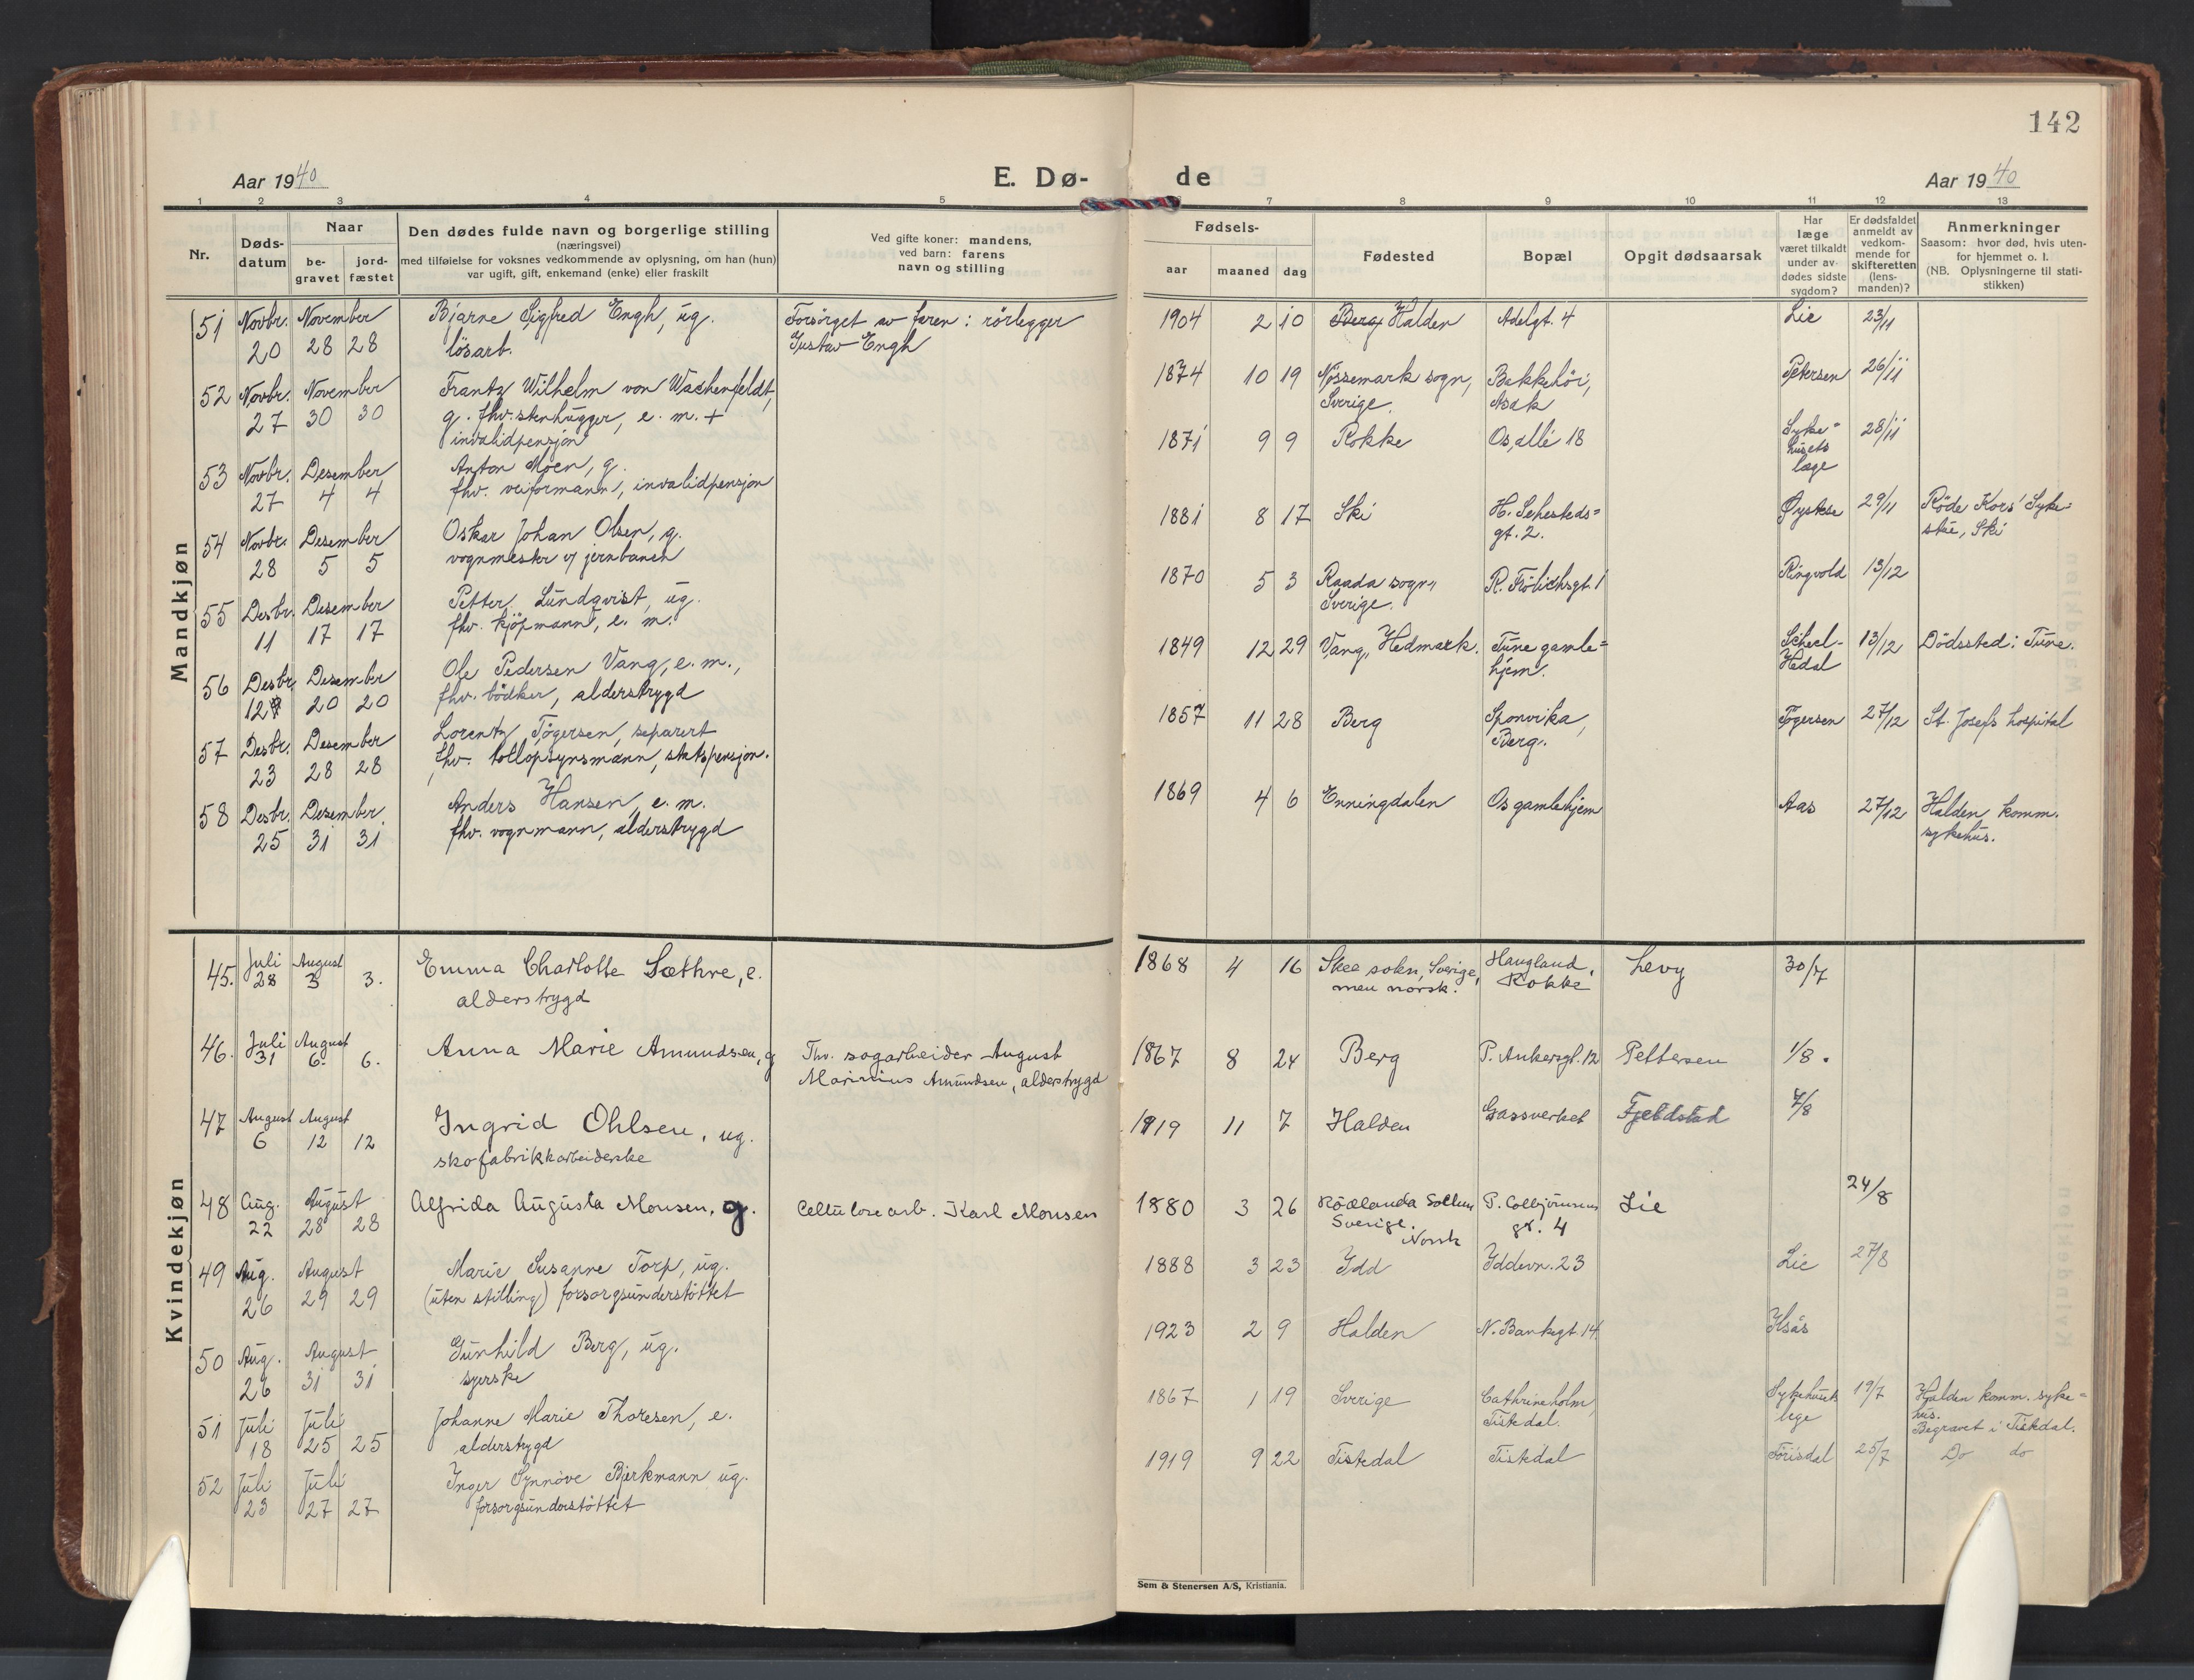 142
Aar 1940
E. Dø-
de
Aar 1940
1 2 3 4 5 7 8 9 10 11 12 13
Nr.
Døds-
datum
Naar
be-
gravet
jord-
fæstet
Den dødes fulde navn og borgerlige stilling
(næringsvei)
med tilføielse for voksnes vedkommende av oplysning, om han (hun)
var ugift, gift, enkemand (enke) eller fraskilt
Ved gifte koner: mandens,
ved barn: farens
navn og stilling
Fødsels-
aar
maaned
dag
Fødested
Bopæl
Opgit dødsaarsak
Har
læge
været tilkaldt
under av-
dødes sidste
sygdom?
Er dødsfaldet
anmeldt av
vedkom-
mende for
skifteretten
(lens-
manden)?
Anmerkninger
Saasom: hvor død, hvis uten-
for hjemmet o. l.
(NB. Oplysningerne til stati-
stikken)
Mandkjøn
51 Novbr. November Bjarne Sigfred Engh, ug. Forsörget av faren: rörlegger 1904 2 10 Berg Halden Adelgt. 4 Lie 23/11
20 28 28 lösarb. Gustav Engh
52 Novbr. November Frantz Wilhelm von Wachenfeldt, 1874 10 19 Nössemark sogn, Bakkehöi, Petersen 26/11
27 30 30 g. fhv. stenhugger, e. m. + Sverige. Asak
invalidpensjon
53 Novbr. Desember Anton Moen, g. 1871 9 9 Rokke Os allé 18 Syke= 28/11
27 4 4 fhv. veiformann, invalidpensjon husets
læge
54 Novbr. Desember Oskar Johan Olsen, g. 1881 8 17 Ski H. Sehesteds= 29/11 Röde Kors' Syke-
28 5 5 vognmester v/ jernbanen gt. 2. Ski
55 Desbr. Desember Petter Lundqvist, ug. 1870 5 3 Raada sogn, R. Frölichsgt. 1 Ringvold 13/12
11 17 17 fhv. kjöpmann, e. m. Sverige.
56 Desbr. Desember Ole Pedersen Vang, e. m., 1849 12 29 Vang, Hedmark. Tune gamle= 13/12 Dödssted: Tune.
12 20 20 fhv. bödker, alderstrygd hjem. Hedal
57 Desbr. Desember Lorentz Tögersen, separert 1857 11 28 Berg Sponvika, Tögersen 27/12 St. Josefs hospital
23 28 28 fhv. tollopsynsmann, statspensjon. Berg.
58 Desbr. Desember Anders Hansen, e. m. 1869 4 6 Enningdalen Os gamlehjem Aas 27/12 Halden komm.
25 31 31 fhv. vognmann, alderstrygd sykehus.
Kvindekjøn
45. Juli August Emma Charlotte Sæthre, e. 1868 4 16 Skee sokn, Sverige, Haugland, Levy 30/7
28 3 3. alderstrygd men norsk. Rokke
46. Juli August Anna Marie Amundsen, g Fhv. sagarbeider August 1867 8 24 Berg P. Ankersgt. 12 Pettersen 1/8.
31 6. 6. Marinius Amundsen, alderstrygd
47 August August Ingrid Ohlsen, ug. 1919 11 7 Halden Gassverket Fjeldstad 7/8
6 12 12 skofabrikkarbeiderske
48 Aug. August Alfrida Augusta Monsen, g. Cellulosearb. Karl Monsen 1880 3 26 Rödlanda P. Colbjörnsens Lie 24/8
22 28 28 Sverige. Norsk gt. 4
49 Aug. August Marie Susanne Torp, ug. 1888 3 23 Idd Iddevn. 23 Lie 27/8
26 29 29 (uten stilling) forsorgsunderstöttet
50 Aug. August Gunhild Berg, ug. 1923 2 9 Halden N. Bankgt. 14
26 31 31 syerske
51 Juli Juli Johanne Marie Thoresen, e. 1867 1 19 Sverige Cathrineholm, Sykehusets 19/7 Halden komm. syke=
18 25 25 alderstrygd Tistedal. lege hus.
Begravet i Tistedal.
52 Juli Juli Inger Synnöve Bjerkmann ug. 1919 9 22 Tistedal Tistedal 25/7 Do do
23 27 27 forsorgsunderstöttet
Sem & Stenersen A/S, Kristiania.